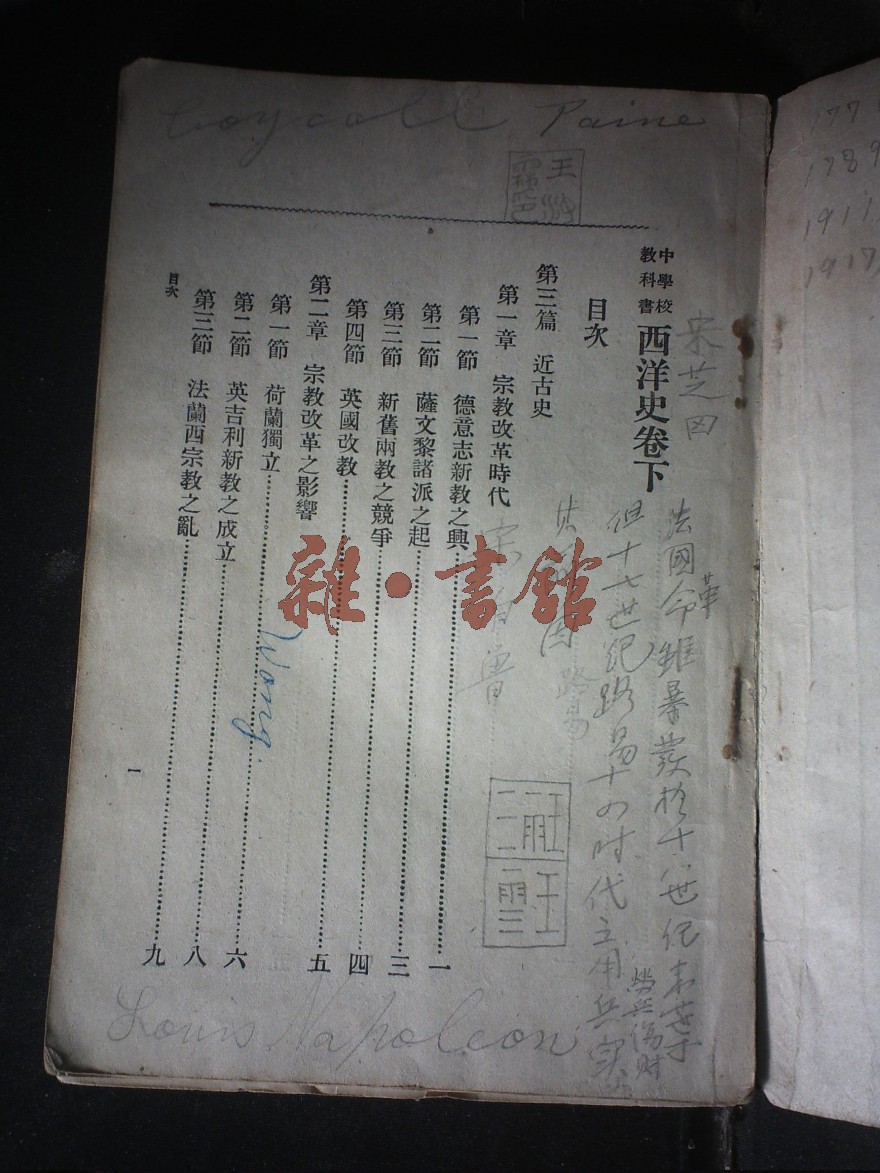 boycott Paine
中學校
教科書
西洋史卷下
目次
第三篇 近古史
第一章 宗教改革時代
第一節 德意志新教之興 一
第二節 薩文黎諸派之起 三
第三節 新舊兩教之競爭 四
第四節 英國改教 五
第二章 宗教改革之影響
第一節 荷蘭獨立 六
第二節 英吉利新教之成立 八
第三節 法蘭西宗教之亂 九
目次
一
宋芝田
法國革命雖暴發於十八世紀末葉
但十七世紀路易十四时代主用兵
勞兵傷財
路易
Wong.
Louis Napoleon
雜·書館
1789
1911
1917